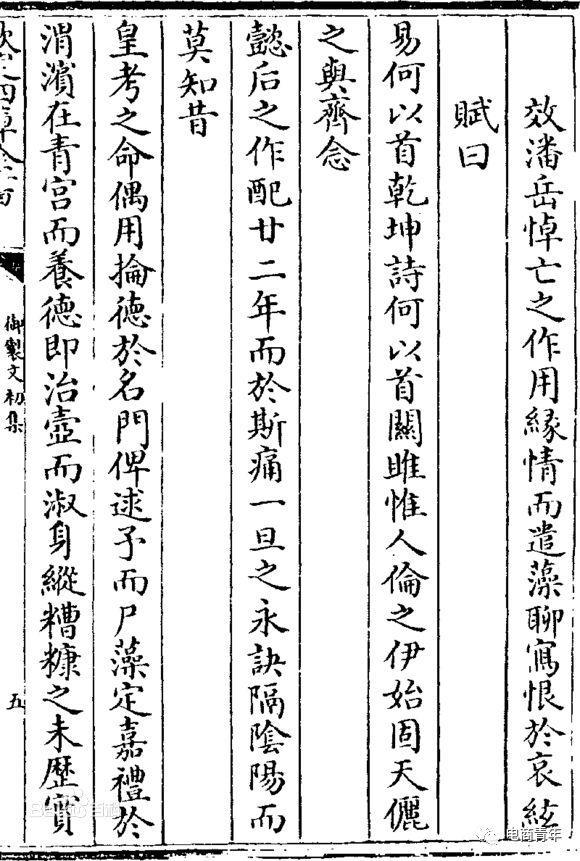 效潘岳悼亡之作用緣情而遣藻聊寫恨於哀絃
賦曰
易何以首乾坤詩何以首關雎惟人倫之伊始固天儷
之與齊念
懿后之作配廿二年而於斯痛一旦之永訣隔陰陽而
莫知昔
皇考之命偶用掄德於名門俾逑予而尸藻定嘉禮於
渭濱在青宮而養德即治壼而淑身縱糟糠之未歷實
御製文初集
五
电商青年